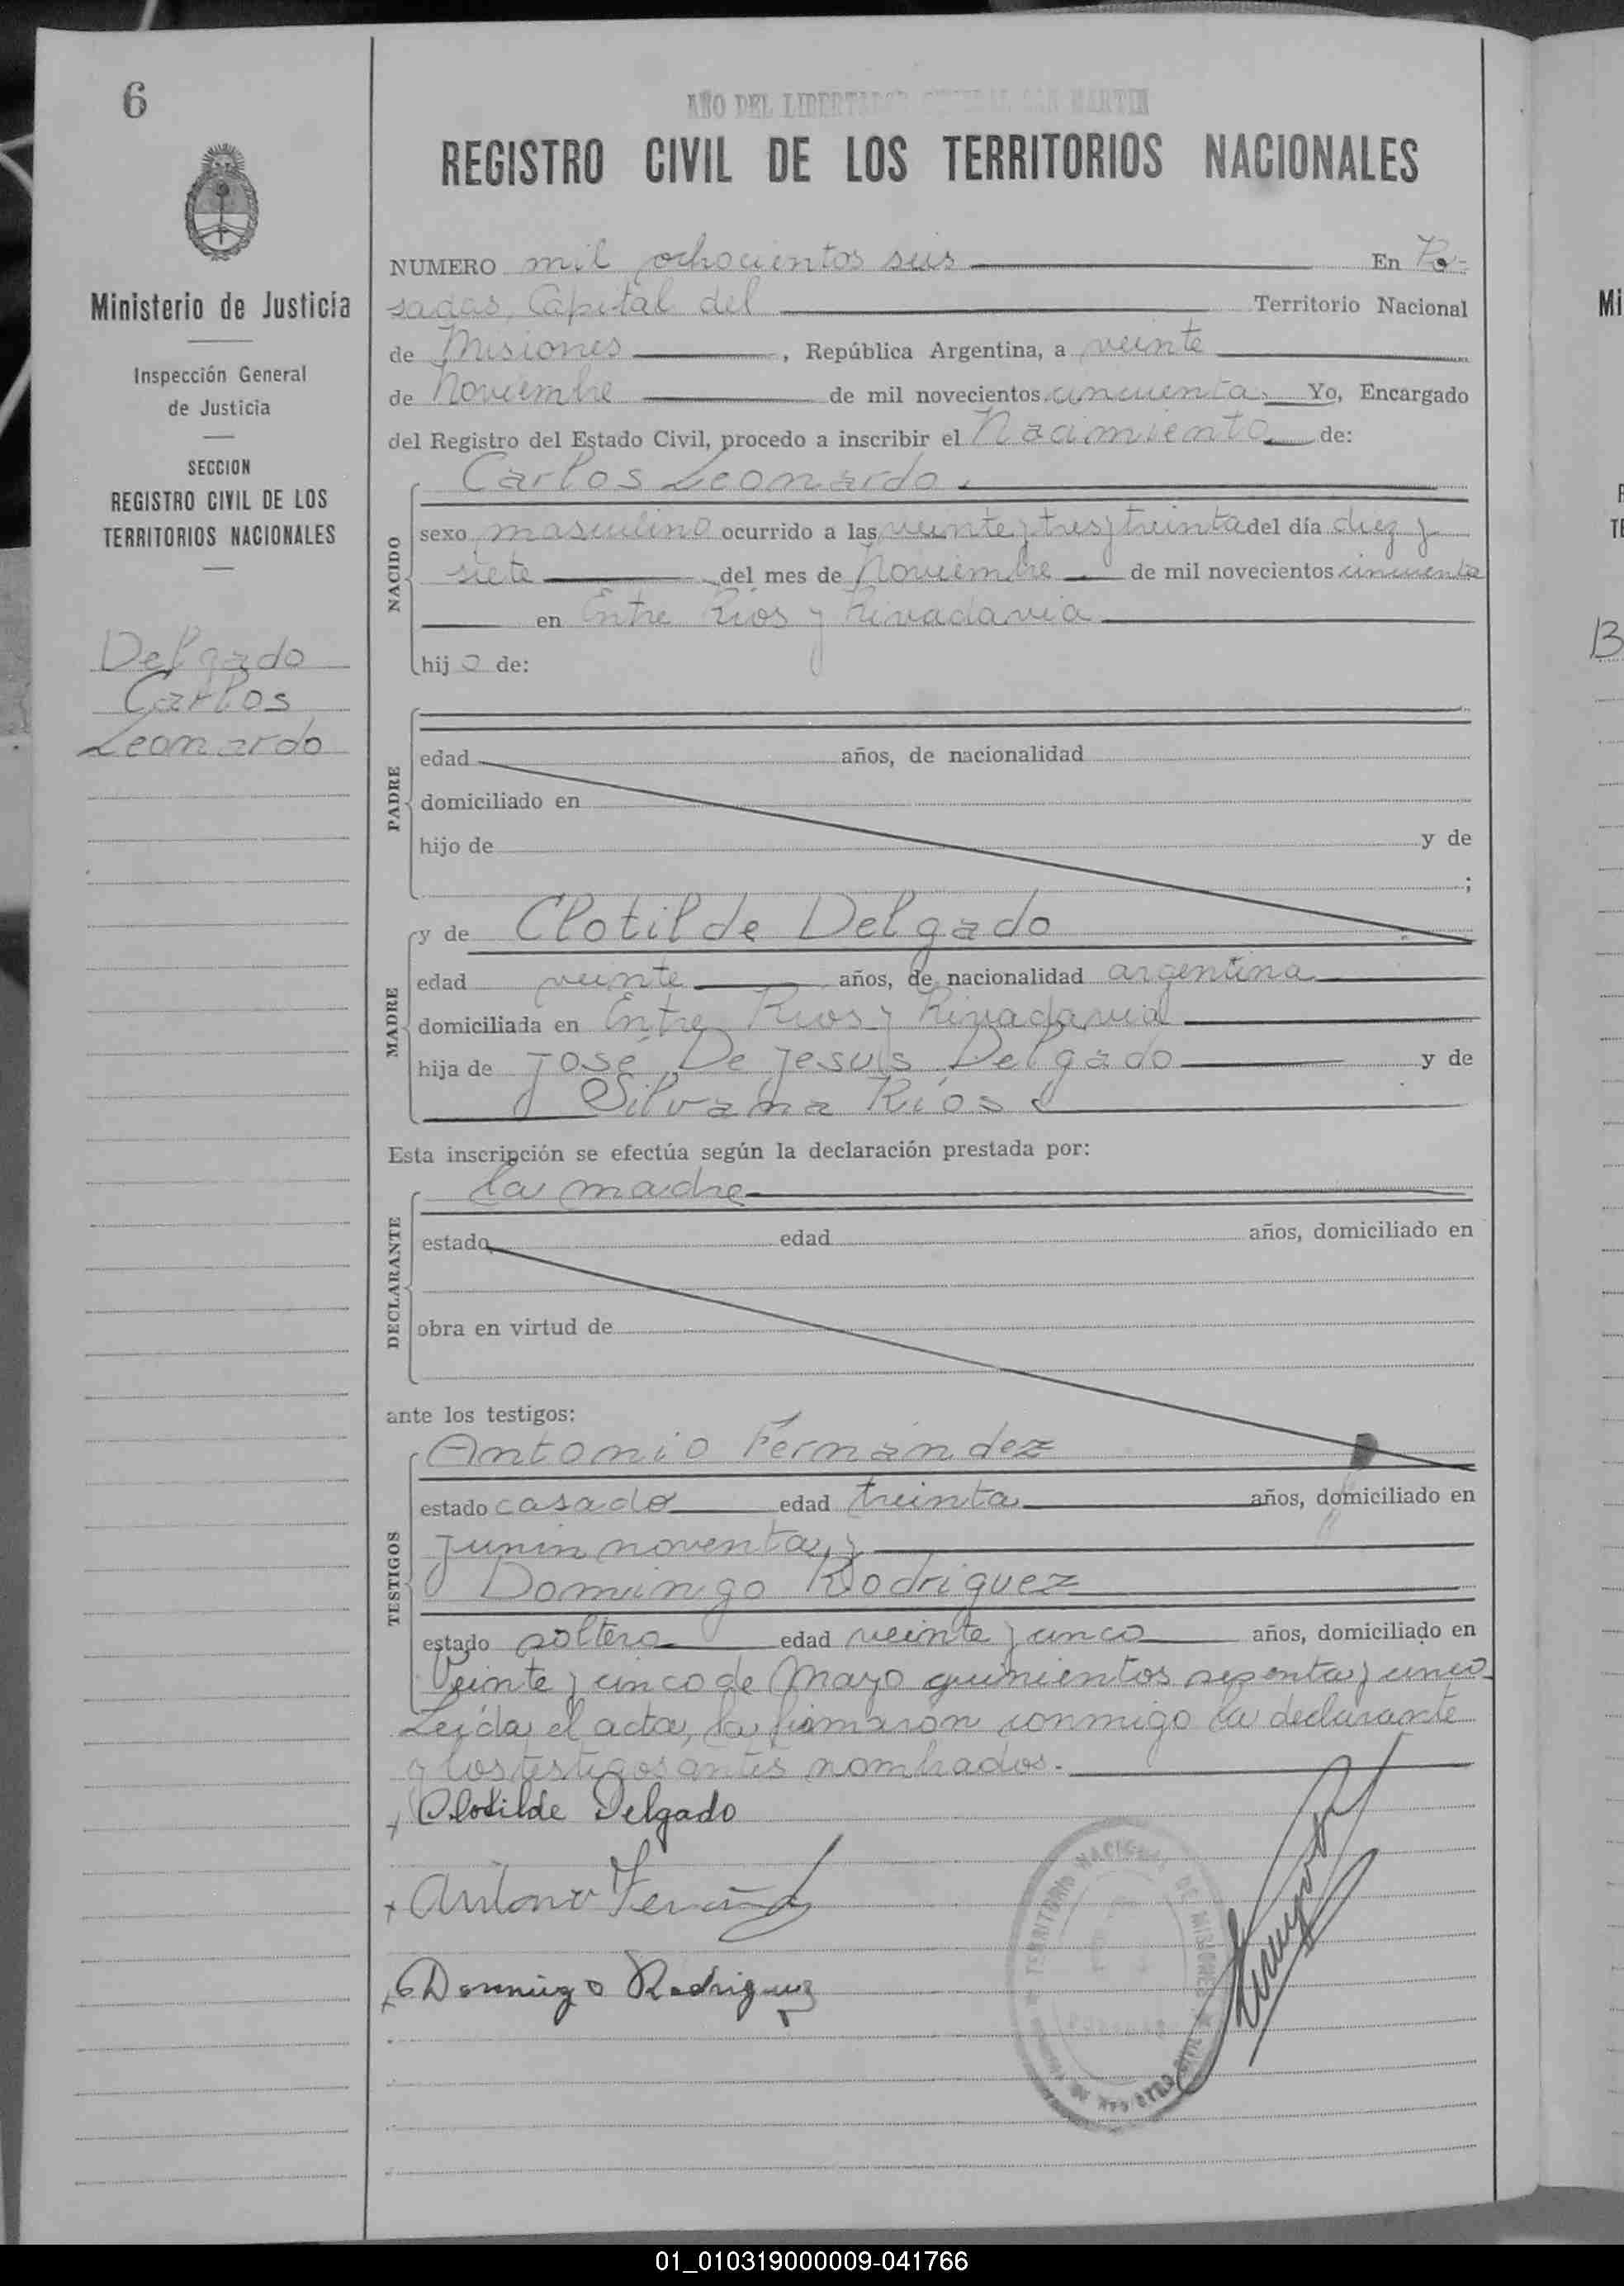 6
AÑO DEL LIBERTADOR GENERAL SAN MARTIN
REGISTRO CIVIL DE LOS TERRITORIOS NACIONALES
Ministerio de Justicia
Inspección General
de Justicia
SECCION
REGISTRO CIVIL DE LOS
TERRITORIOS NACIONALES
Delgado
Carlos
Leonardo
NUMERO mil ochocientos seis En Po-
sadas, Capital del Territorio Nacional
de Misiones, República Argentina, a veinte
de Noviembre de mil novecientos cincuenta. Yo, Encargado
del Registro del Estado Civil, procedo a inscribir el Nacimiento de:
NACIDO
Carlos Leonardo.
sexo masculino ocurrido a las veinte y tres y treinta del día diez y
siete del mes de Noviembre de mil novecientos cincuenta
en Entre Ríos y Rivadavia
hijo de:
PADRE
edad años, de nacionalidad
domiciliado en
hijo de y de
;
MADRE
y de Clotilde Delgado
edad veinte años, de nacionalidad argentina
domiciliada en Entre Ríos y Rivadavia
hija de José De Jesus Delgado y de
Silvana Ríos
Esta inscripción se efectúa según la declaración prestada por:
DECLARANTE
la madre
estado edad años, domiciliado en
obra en virtud de
ante los testigos:
TESTIGOS
Antonio Fernández
estado casado edad treinta años, domiciliado en
Junin noventa, y
Domingo Rodriguez
estado soltero edad veinte y cinco años, domiciliado en
Veinte y cinco de Mayo quinientos sesenta y cinco
Leída el acta, la firmaron conmigo la declarante
y los testigos antes nombrados.-
+ Clotilde Delgado
+ Antonio
+ Domingo Rodriguez
TERRITORIO NACIONAL DE MISIONES
01_010319000009-041766